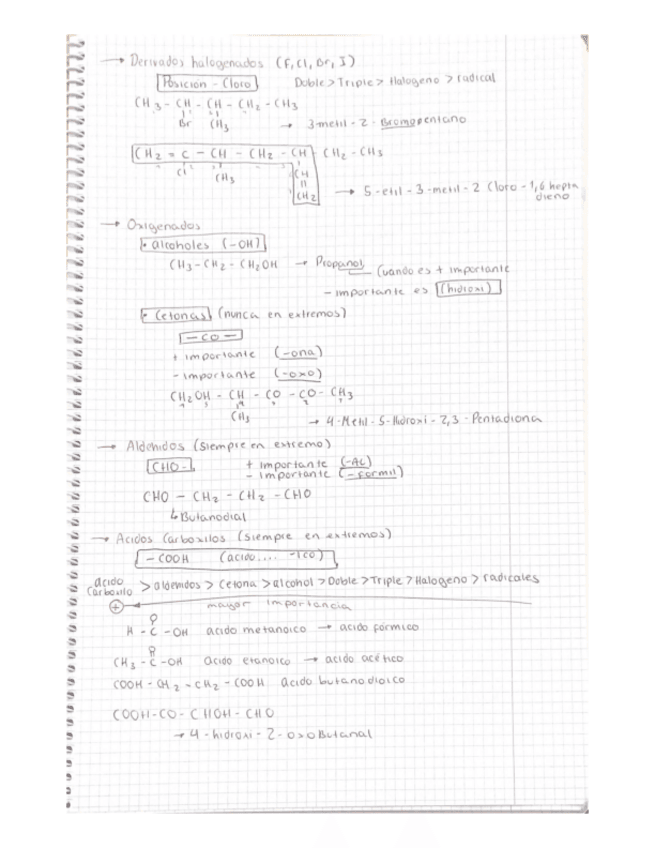 → Derivados halogenados (F, Cl, Br, I)
Posición - Cloro   Doble > Triple > Halogeno > radical
CH3 - CH - CH - CH2 - CH3
Br   CH3   → 3-metil-2-Bromopentano
CH2 = C - CH - CH2 - CH - CH2 - CH3
Cl   CH3   CH
CH2   → 5-etil-3-metil-2 Cloro-1,6 hepta
dieno
→ Oxigenados
• alcoholes (-OH)
CH3-CH2-CH2OH → Propanol Cuando es + importante
- importante es (hidroxi)
• Cetonas (nunca en extremos)
-CO-
+ importante (-ona)
- importante (-oxo)
CH2OH - CH - CO - CO - CH3
CH3   → 4-Metil-5-Hidroxi-2,3-Pentadiona
→ Aldehidos (Siempre en extremo)
CHO-   + importante (-AL)
- importante (-formil)
CHO - CH2 - CH2 - CHO
↳ Butanodial
→ Acidos Carboxilos (Siempre en extremos)
-COOH (acido.... -ico)
acido
Carboxilo > aldehidos > Cetona > alcohol > Doble > Triple > Halogeno > radicales
+ ← mayor importancia
O
H - C - OH acido metanoico → acido fórmico
O
CH3 - C - OH acido etanoico → acido acético
COOH - CH2 - CH2 - COOH acido butanodioico
COOH-CO-CHOH-CHO
→ 4-hidroxi-2-oxoButanal